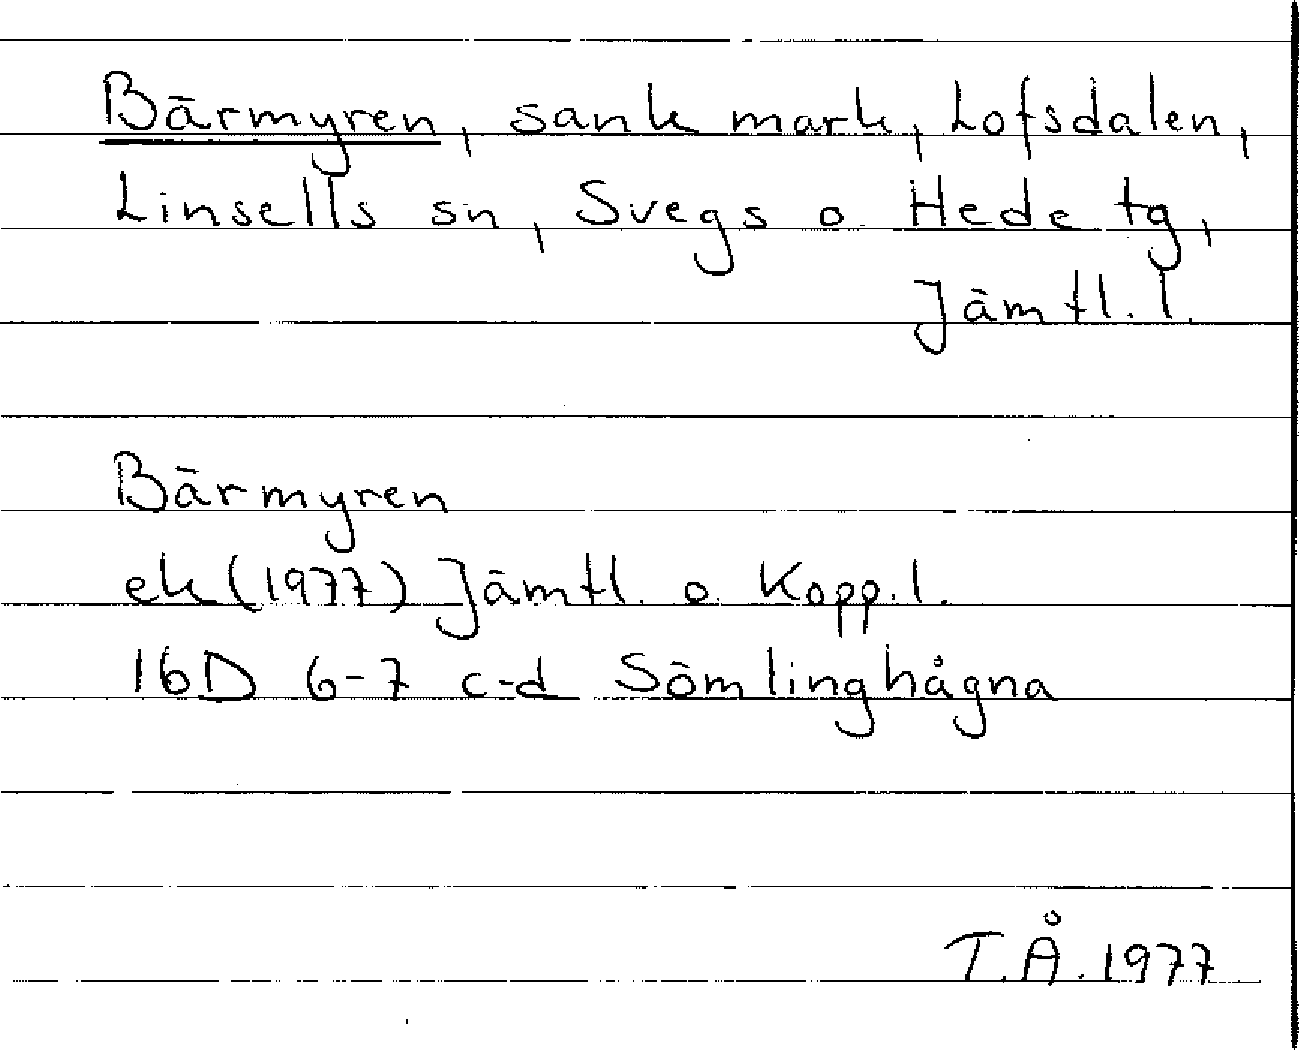 Bärmyren, sank mark, Lofsdalen,
Linsells sn, Svegs o. Hede tg,
Jämtl. l.
Bärmyren
ek (1977) Jämtl. o. Kopp. l.
16D 6-7 c-d Sömlinghågna
T.Å. 1977